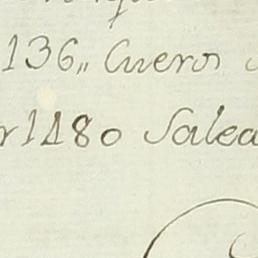 136,, Cueros
1480 Salea